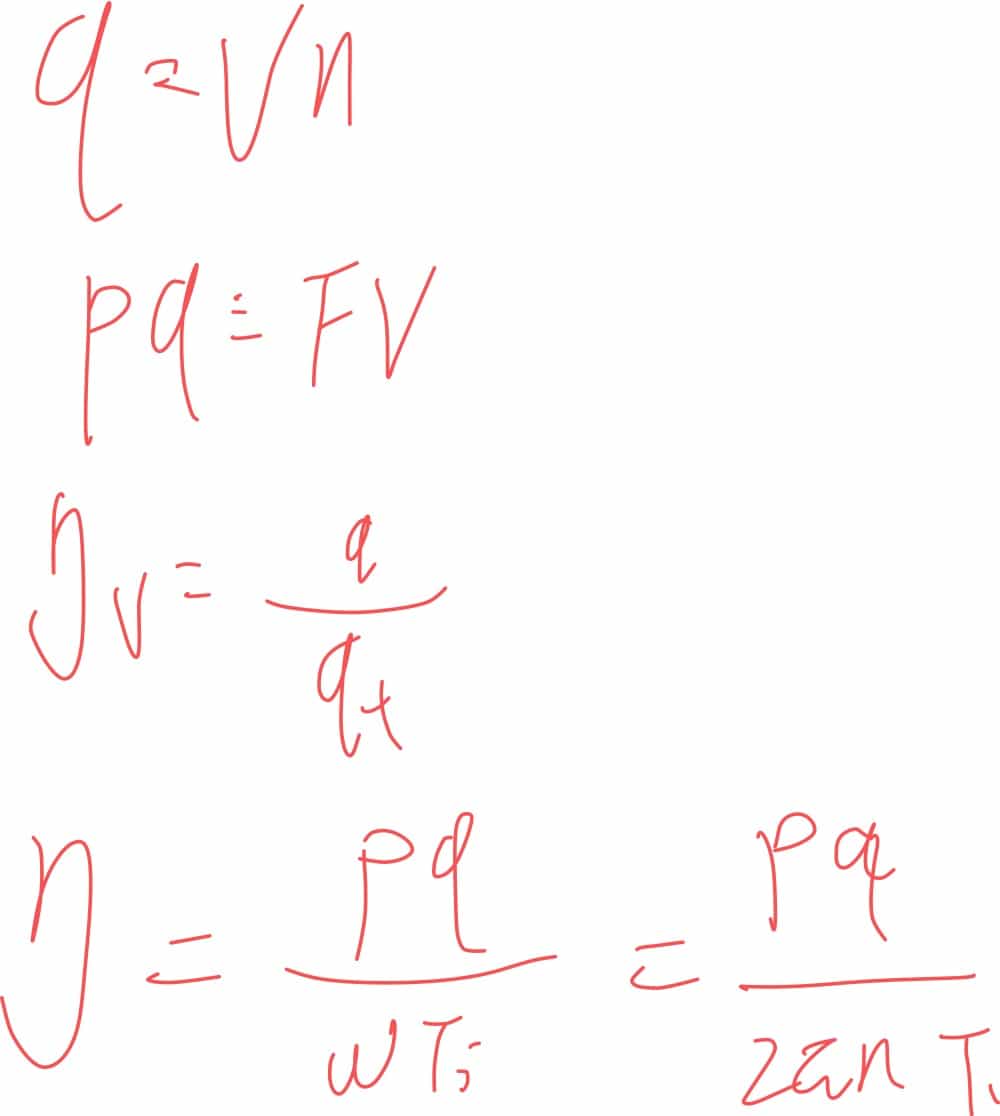 q = Vn
pq = FV
ηv = q / qt
η = pq / ωTi = pq / 2πn Ti